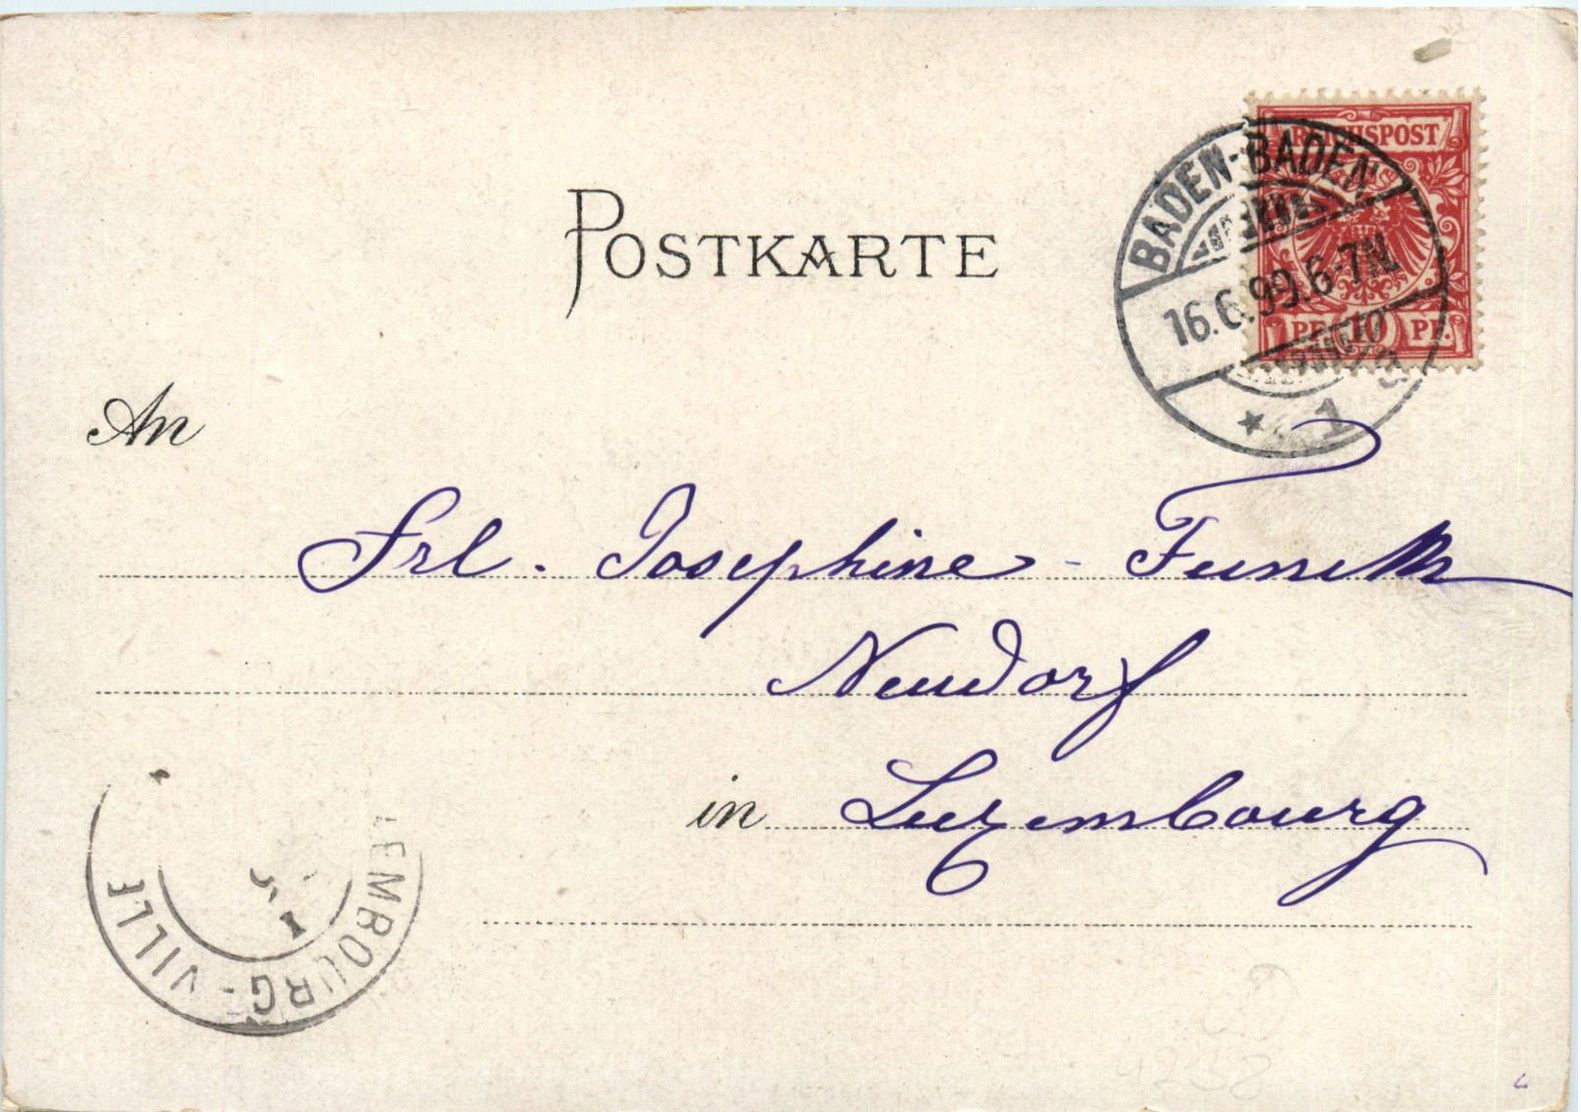 REICHSPOST
PF. 10 PF.
BADEN-BADEN
16.6.99.6-7N.
* 1
POSTKARTE
An
Frl. Josephine Funck
Neudorf
in Luxembourg
EMBOURG-VILLE